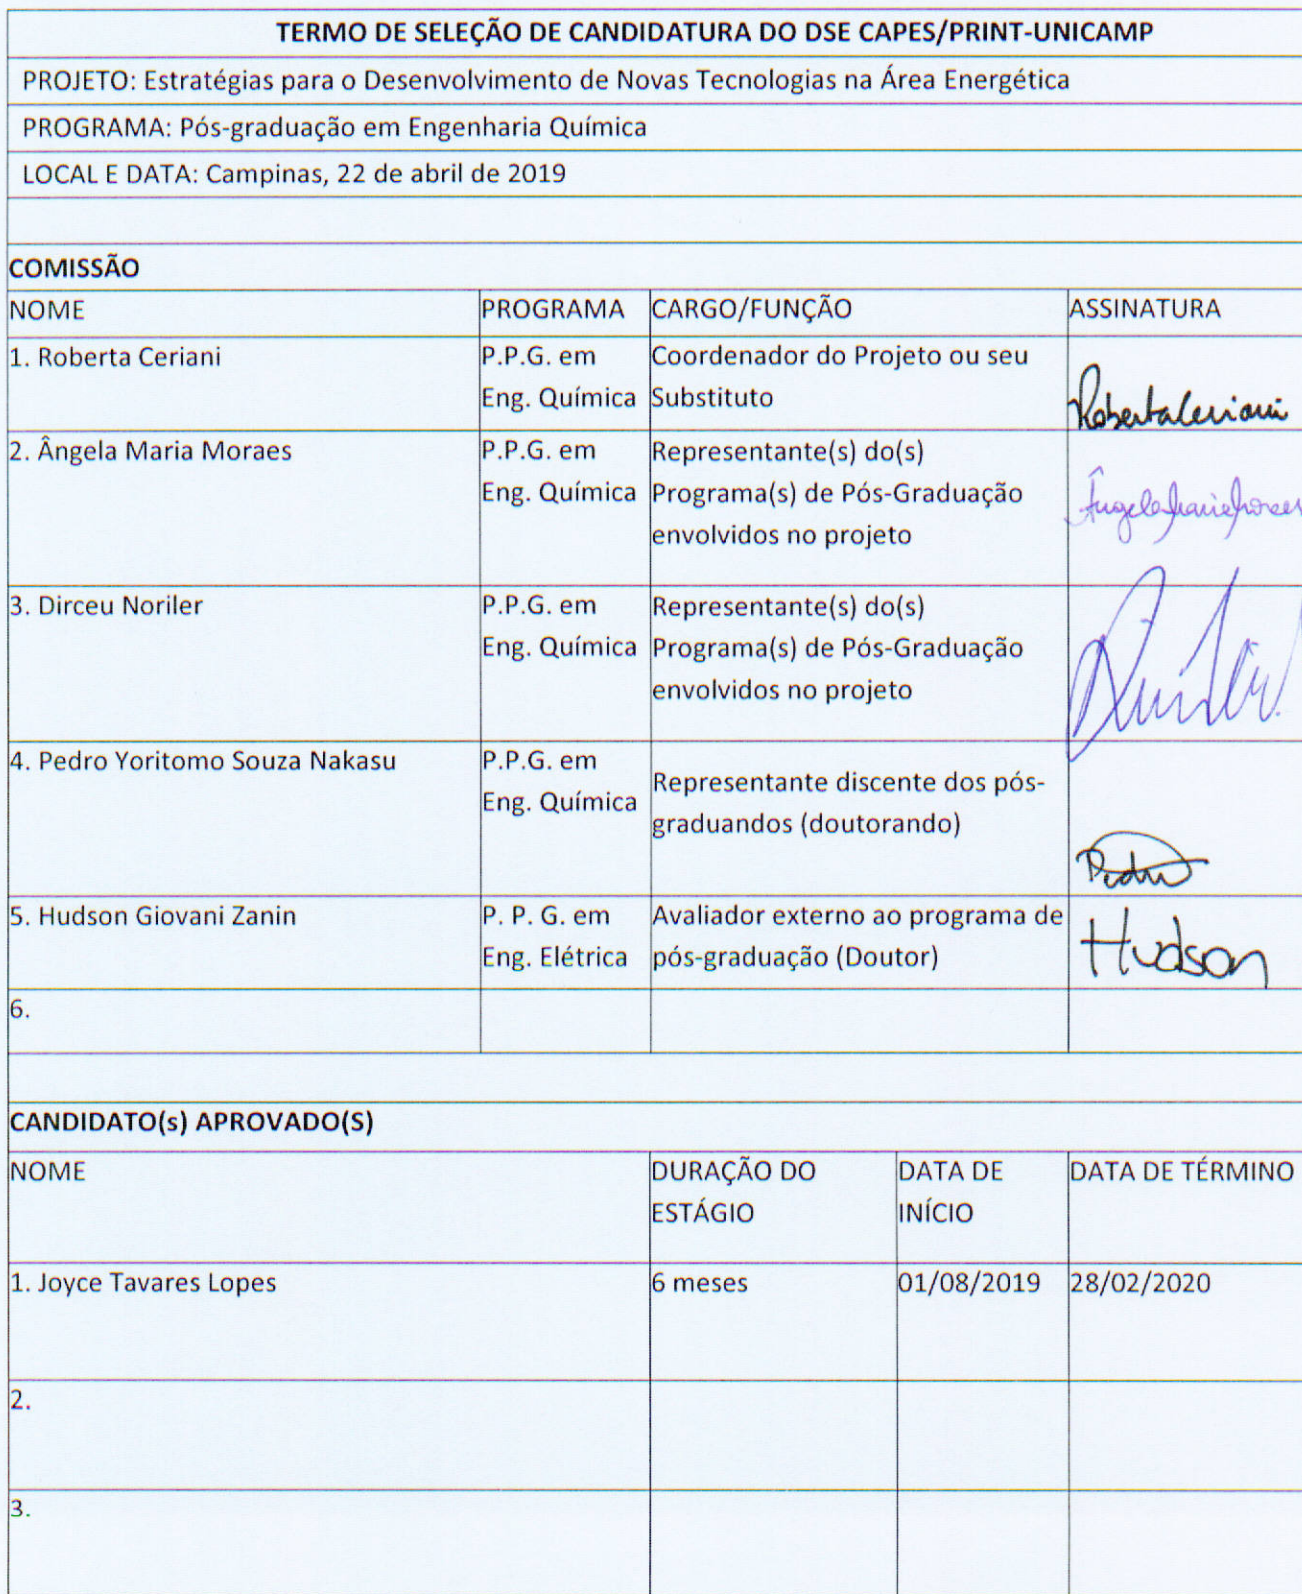 TERMO DE SELEÇÃO DE CANDIDATURA DO DSE CAPES/PRINT-UNICAMP
PROJETO: Estratégias para o Desenvolvimento de Novas Tecnologias na Área Energética
PROGRAMA: Pós-graduação em Engenharia Química
LOCAL E DATA: Campinas, 22 de abril de 2019
COMISSÃO
NOME PROGRAMA CARGO/FUNÇÃO ASSINATURA
1. Roberta Ceriani P.P.G. em Coordenador do Projeto ou seu
Eng. Química Substituto Roberta Ceriani
2. Ângela Maria Moraes P.P.G. em Representante(s) do(s)
Eng. Química Programa(s) de Pós-Graduação Ângela Maria Moraes
envolvidos no projeto
3. Dirceu Noriler P.P.G. em Representante(s) do(s)
Eng. Química Programa(s) de Pós-Graduação
envolvidos no projeto
4. Pedro Yoritomo Souza Nakasu P.P.G. em
Eng. Química Representante discente dos pós-
graduandos (doutorando)
Pedro
5. Hudson Giovani Zanin P. P. G. em Avaliador externo ao programa de
Eng. Elétrica pós-graduação (Doutor) Hudson
6.
CANDIDATO(s) APROVADO(S)
NOME DURAÇÃO DO DATA DE DATA DE TÉRMINO
ESTÁGIO INÍCIO
1. Joyce Tavares Lopes 6 meses 01/08/2019 28/02/2020
2.
3.